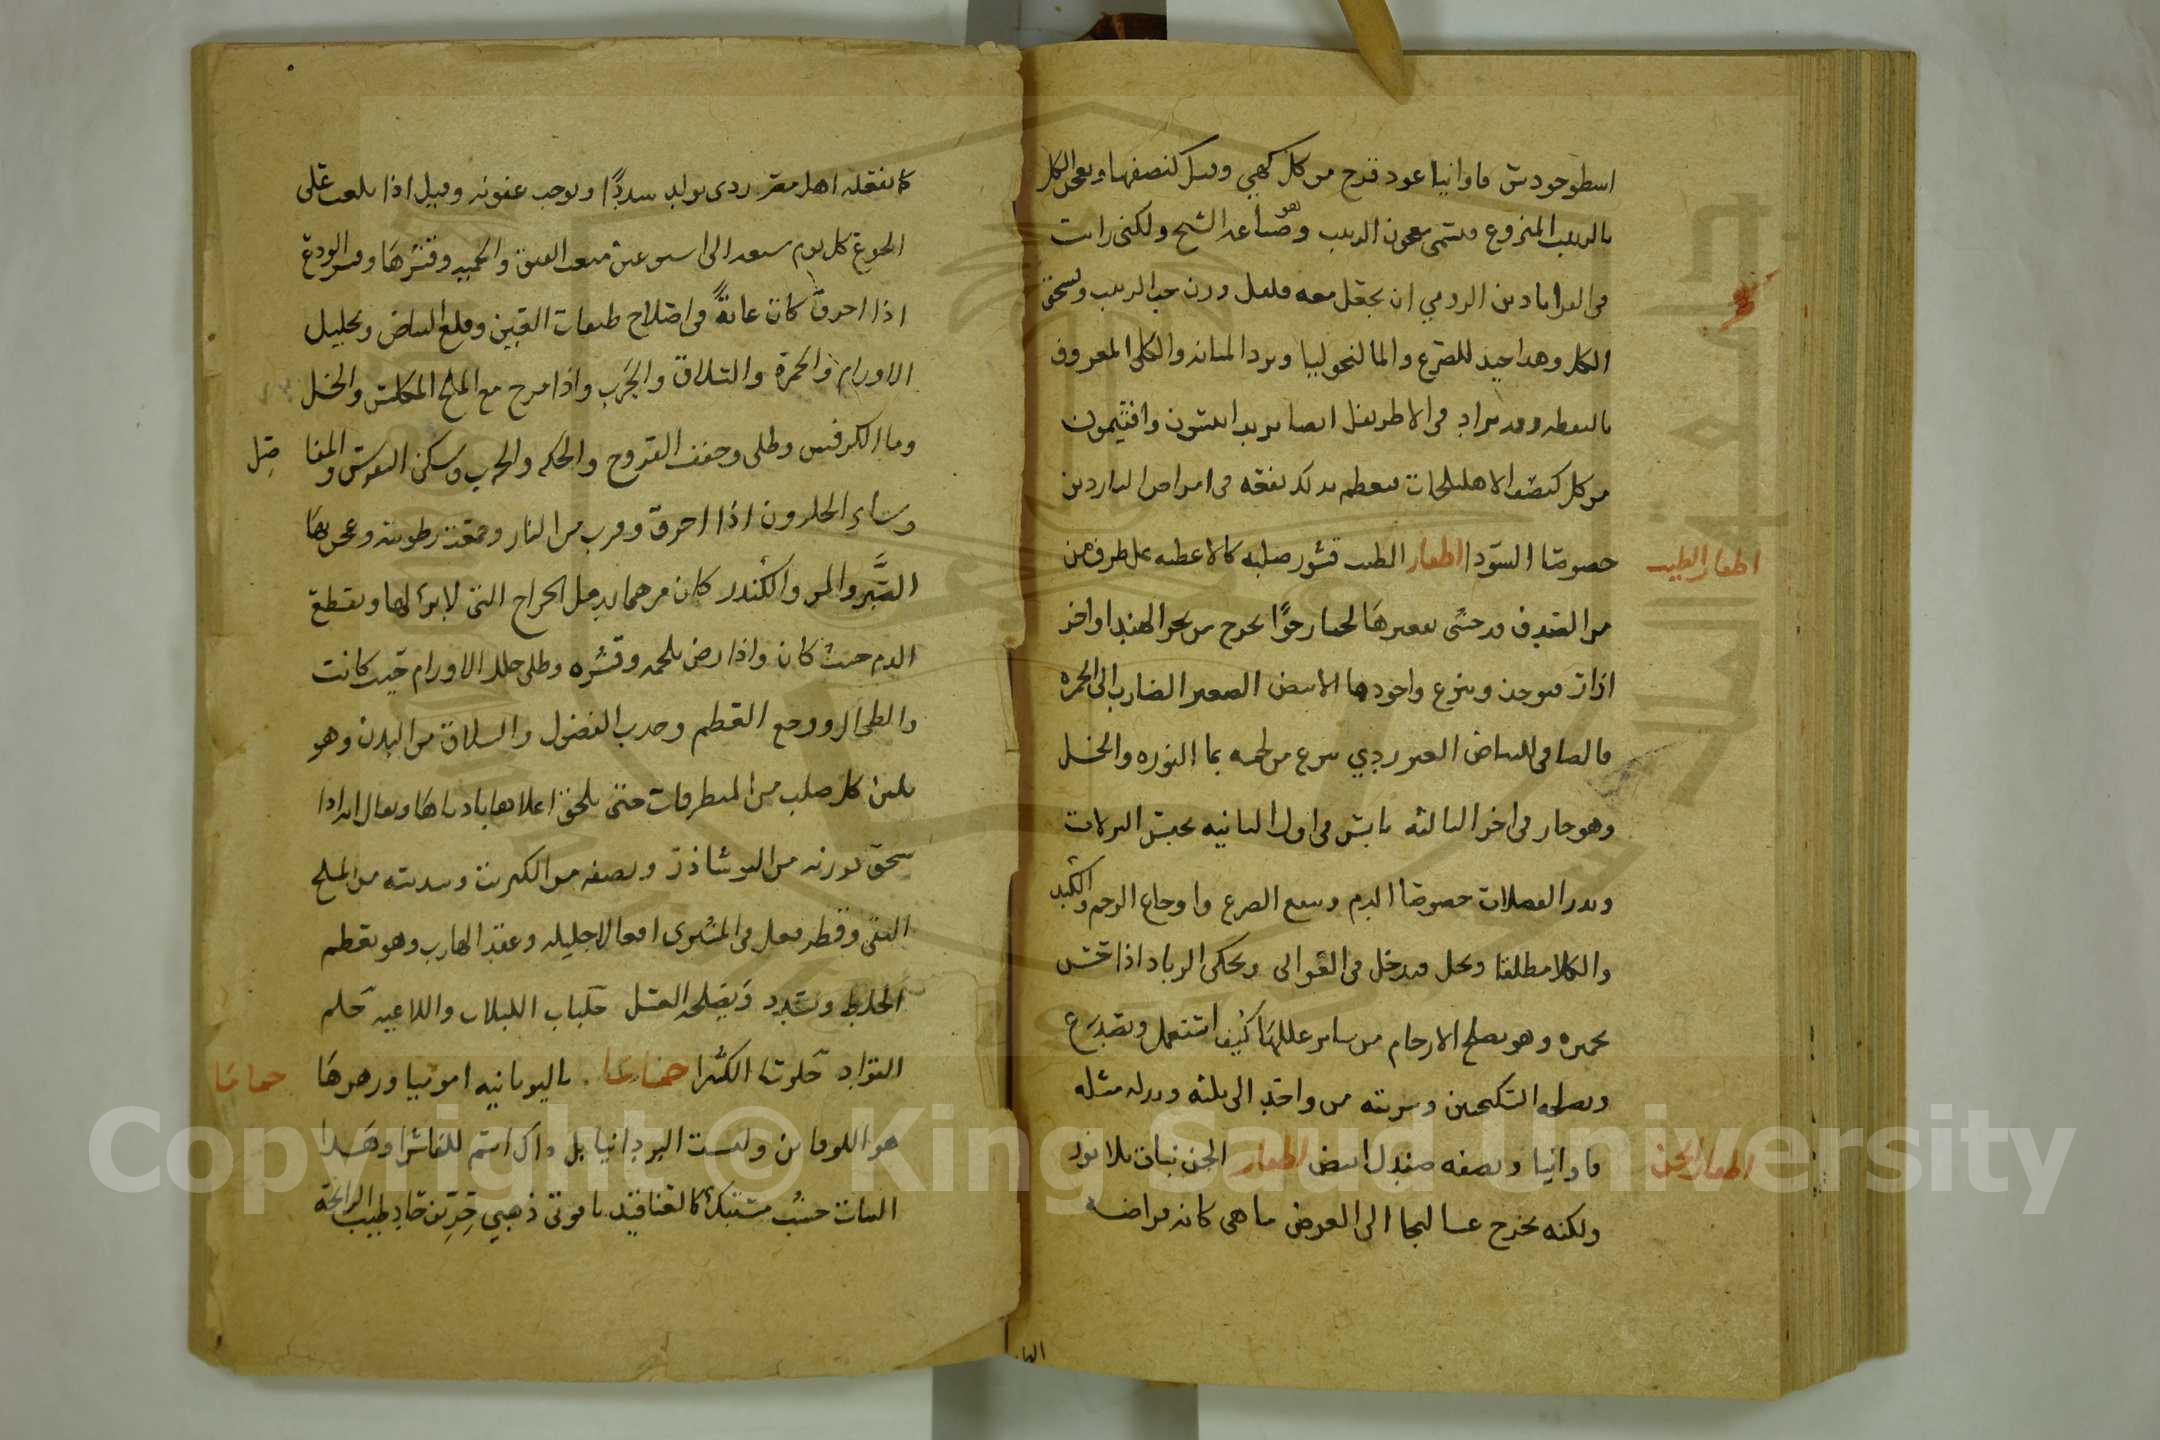 اسطوخودس فاوانيا عود قرح من كل كهي وقيل كنصفها ويعجن الكل
بالزبيب المنزوع ويسمى معجون الزبيب وهو صناعه الشيخ ولكني رايت
في القراباذين الرومي ان يجعل معه فلفل وزن حب الزبيب ويسحق
الكل وهذا جيد للصرع والمالنخوليا وبرد المثانه والكلى المعروف
وقد يزاد في الاطريفل ايضا وافتيمون
من كل كنصف الاهليلجات فيعظم بذلك نفعه في امراض الباردين
خصوصا السودا اظفار الطيب قشور صلبه كالاغطيه على طرف من
اظفار الطيب
من الصدف قد حشى تقعيرها لحما رخوا يخرج من بحر الهند اواخر
اذار فيوخذ وينزع واجودها الابيض الصغير الضارب الى الحمره
فالصافى البياض الغير ردي ينزع من لحمه بما النوره والخل
وهو حار في اخر الثالثه يابس في اول الثانيه يحبس النزلات
ويدر الفضلات خصوصا الدم وينفع الصرع واوجاع الرحم والكبد
والكلا مطلقا ويحل ويدخل في الغوالى ويحكى الزباد اذا حسن
تخميره وهو يصلح الارحام من ساير عللها كيف استعمل ويصدع
ويصلحه السكنجبين وشربته من واحد الى ثلثه وبدله مثله
فاوانيا ونصفه صندل ابيض اظفار الجن نبات بلا نور
اظفار الجن
ولكنه يخرج عساليجا الى العرض ما هى كانه قراضه
كما تفعله اهل مصر ردى يولد سددا ويوجب عفونه وقيل اذا بلعت على
الجوع كل يوم سبعه الى اسبوعين منعت الفتق وقشرها وقشر الودع
اذا احرق كان غاية في اصلاح طبقات العين وقلع البياض وتحليل
الاورام والحمرة والسلاق والجرب واذا مزج مع الملح المكلس والخل
وما الكرفس وطلى وجفف القروح والحكه والجرب وسكن النقرس والمفا
صل
وساير الحلزون اذا احرق وقرب من النار وصمغت رطوبته وعجن بها
الصبر والمر والكندر كان مرهما يدمل الجراح التى لا برء لها ويقطع
الدم حيث كان واذا رض بلحمه وقشره وطلى حلل الاورام حيث كانت
والطحال ووجع العظم وجذب الفضول والسلاق من البدن وهو
يلين كل صلب من المتطرقات حتى يلحق اعلاها بادناها ويقال انه اذا
سحق بوزنه من النوشاذر ونصفه من الكبريت وسدسه من الملح
النقى وقطر فعل في المشترى افعالا جليله وعقد الهارب وهو يقطم
الخلط ويسدد ويصلحه العسل حلباب اللبلاب واللاعيه حلم
القراد حلوسا الكثيرا حماما باليونانيه امومبيا وزهرها
حماما
هو اللوفا بن وليست البردانيا بل ذاك اسم للفاشرا وهذا
النبات خشب مشتبك كالعناقيد ياقوتي ذهبي حريف حاد طيب الرائحة